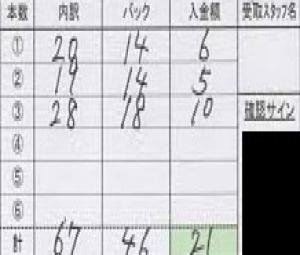 本数 内訳 バック 入金額 受取スタッフ名
① 20 14 6
② 19 14 5
③ 28 18 10 確認サイン
④
⑤
⑥
計 67 46 21